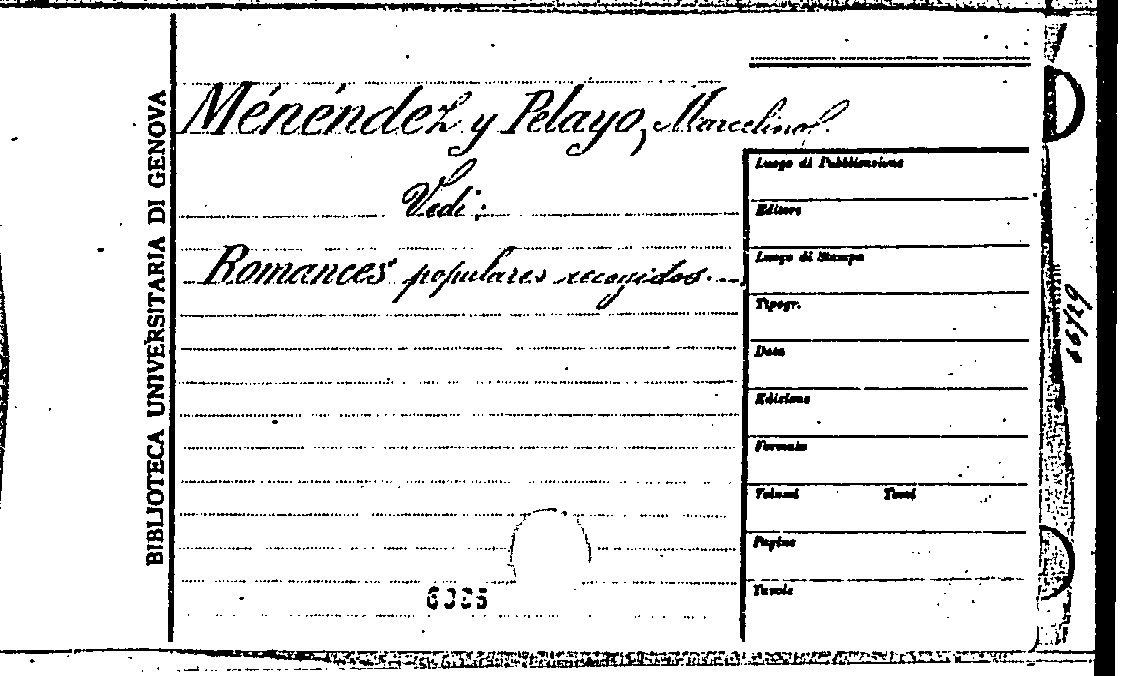 BIBLIOTECA UNIVERSITARIA DI GENOVA
Ménéndez y Pelayo, Marcelino.
Vedi:
Romances populares recogidos...
Luogo di Pubblicazione
Editore
Luogo di Stampa
Tipogr.
Data
Edizione
Formato
Volumi Tomi
Pagine
Tavole